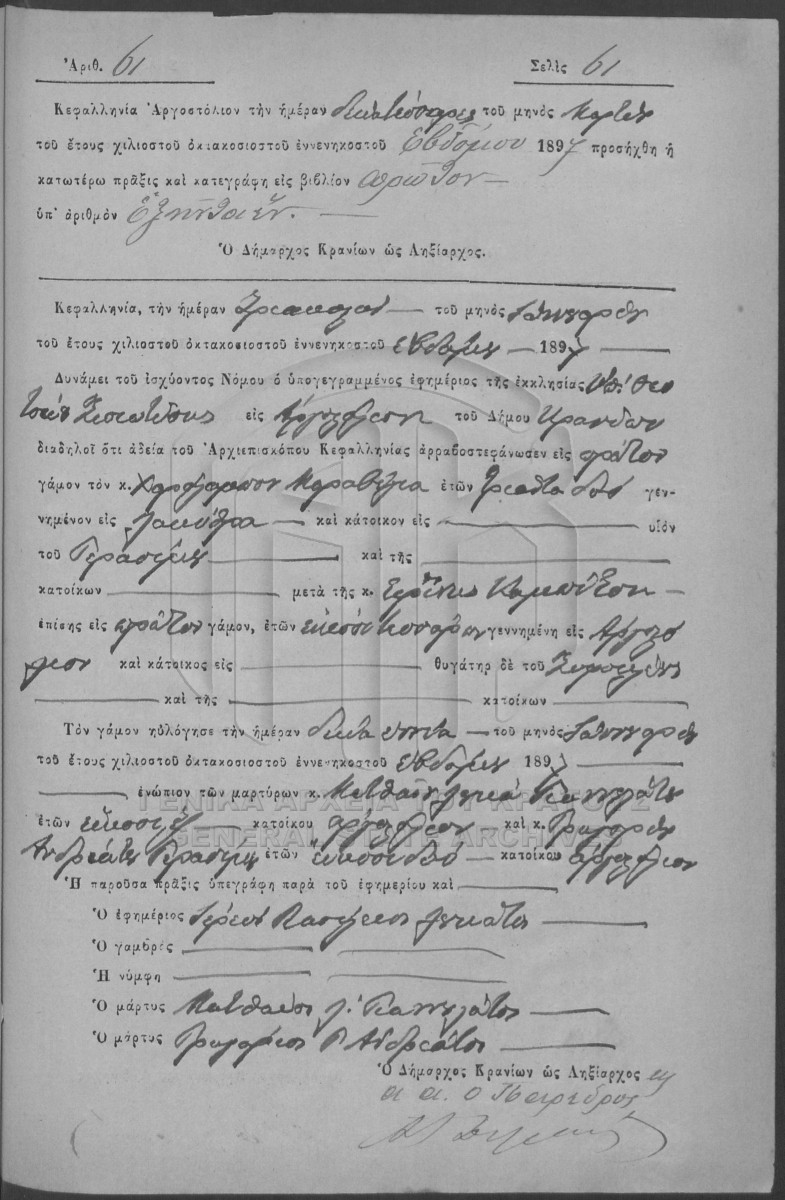 Ἀριθ. 61 Σελὶς 61
Κεφαλληνία Ἀργοστόλιον τὴν ἡμέραν τοῦ μηνὸς Μαρτίου
τοῦ ἔτους χιλιοστοῦ ὀκτακοσιοστοῦ ἐννενηκοστοῦ Ἑβδόμου 1897 προσήχθη ἡ
κατωτέρω πρᾶξις καὶ κατεγράφη εἰς βιβλίον πρῶτον
ὑπ' ἀριθμὸν Ἑξήντα ἕν.
Ὁ Δήμαρχος Κρανίων ὡς Ληξίαρχος.
Κεφαλληνία, τὴν ἡμέραν τοῦ μηνὸς Ἰανουαρίου
τοῦ ἔτους χιλιοστοῦ ὀκτακοσιοστοῦ ἐννενηκοστοῦ ἑβδόμου 1897
Δυνάμει τοῦ ἰσχύοντος Νόμου ὁ ὑπογεγραμμένος ἐφημέριος τῆς ἐκκλησίας Ὑπ. Θεο
τόκου εἰς Ἀργοστόλιον τοῦ Δήμου Κρανίων
διαδηλοῖ ὅτι ἀδεία τοῦ Ἀρχιεπισκόπου Κεφαλληνίας ἀρραβοστεφάνωσεν εἰς πρῶτον
γάμον τὸν κ. Χαράλαμπον Μαραβέγια ἐτῶν τριάντα δύο γεν-
νημένον εἰς καὶ κάτοικον εἰς υἱὸν
τοῦ Γερασίμου καὶ τῆς
κατοίκων μετὰ τῆς κ. Εἰρήνης
ἐπίσης εἰς πρῶτον γάμον, ἐτῶν εἴκοσι τεσσάρων γεννημένη εἰς Ἀργοστό
λιον καὶ κάτοικος εἰς θυγάτηρ δὲ τοῦ
καὶ τῆς κατοίκων
Τὸν γάμον ηὐλόγησε τὴν ἡμέραν δεκάτη ἐννάτη τοῦ μηνὸς Ἰαννουαρίου
τοῦ ἔτους χιλιοστοῦ ὀκτακοσιοστοῦ ἐννενηκοστοῦ ἑβδόμου 1897
ἐνώπιον τῶν μαρτύρων κ. Ματθαίου Γιαννελάτου
ἐτῶν εἴκοσι ἕξ κατοίκου Ἀργοστολίου καὶ κ. Γρηγορίου
Ἀνδρεάτου Γερασίμου ἐτῶν εἴκοσι δύο κατοίκου Ἀργοστολίου
Ἡ παροῦσα πρᾶξις ὑπεγράφη παρὰ τοῦ ἐφημερίου καὶ
Ὁ ἐφημέριος Ἱερεὺς Βασίλειος Λευκάτος
Ὁ γαμβρὸς
Ἡ νύμφη
Ὁ μάρτυς Ματθαῖος Γιαννελάτος
Ὁ μάρτυς Γρηγόριος Γ. Ἀνδρεάτος
Ὁ Δήμαρχος Κρανίων ὡς Ληξίαρχος
α α. ο Πάρεδρος
ΓΕΝΙΚΑ ΑΡΧΕΙΑ ΤΟΥ ΚΡΑΤΟΥΣ
GENERAL STATE ARCHIVES